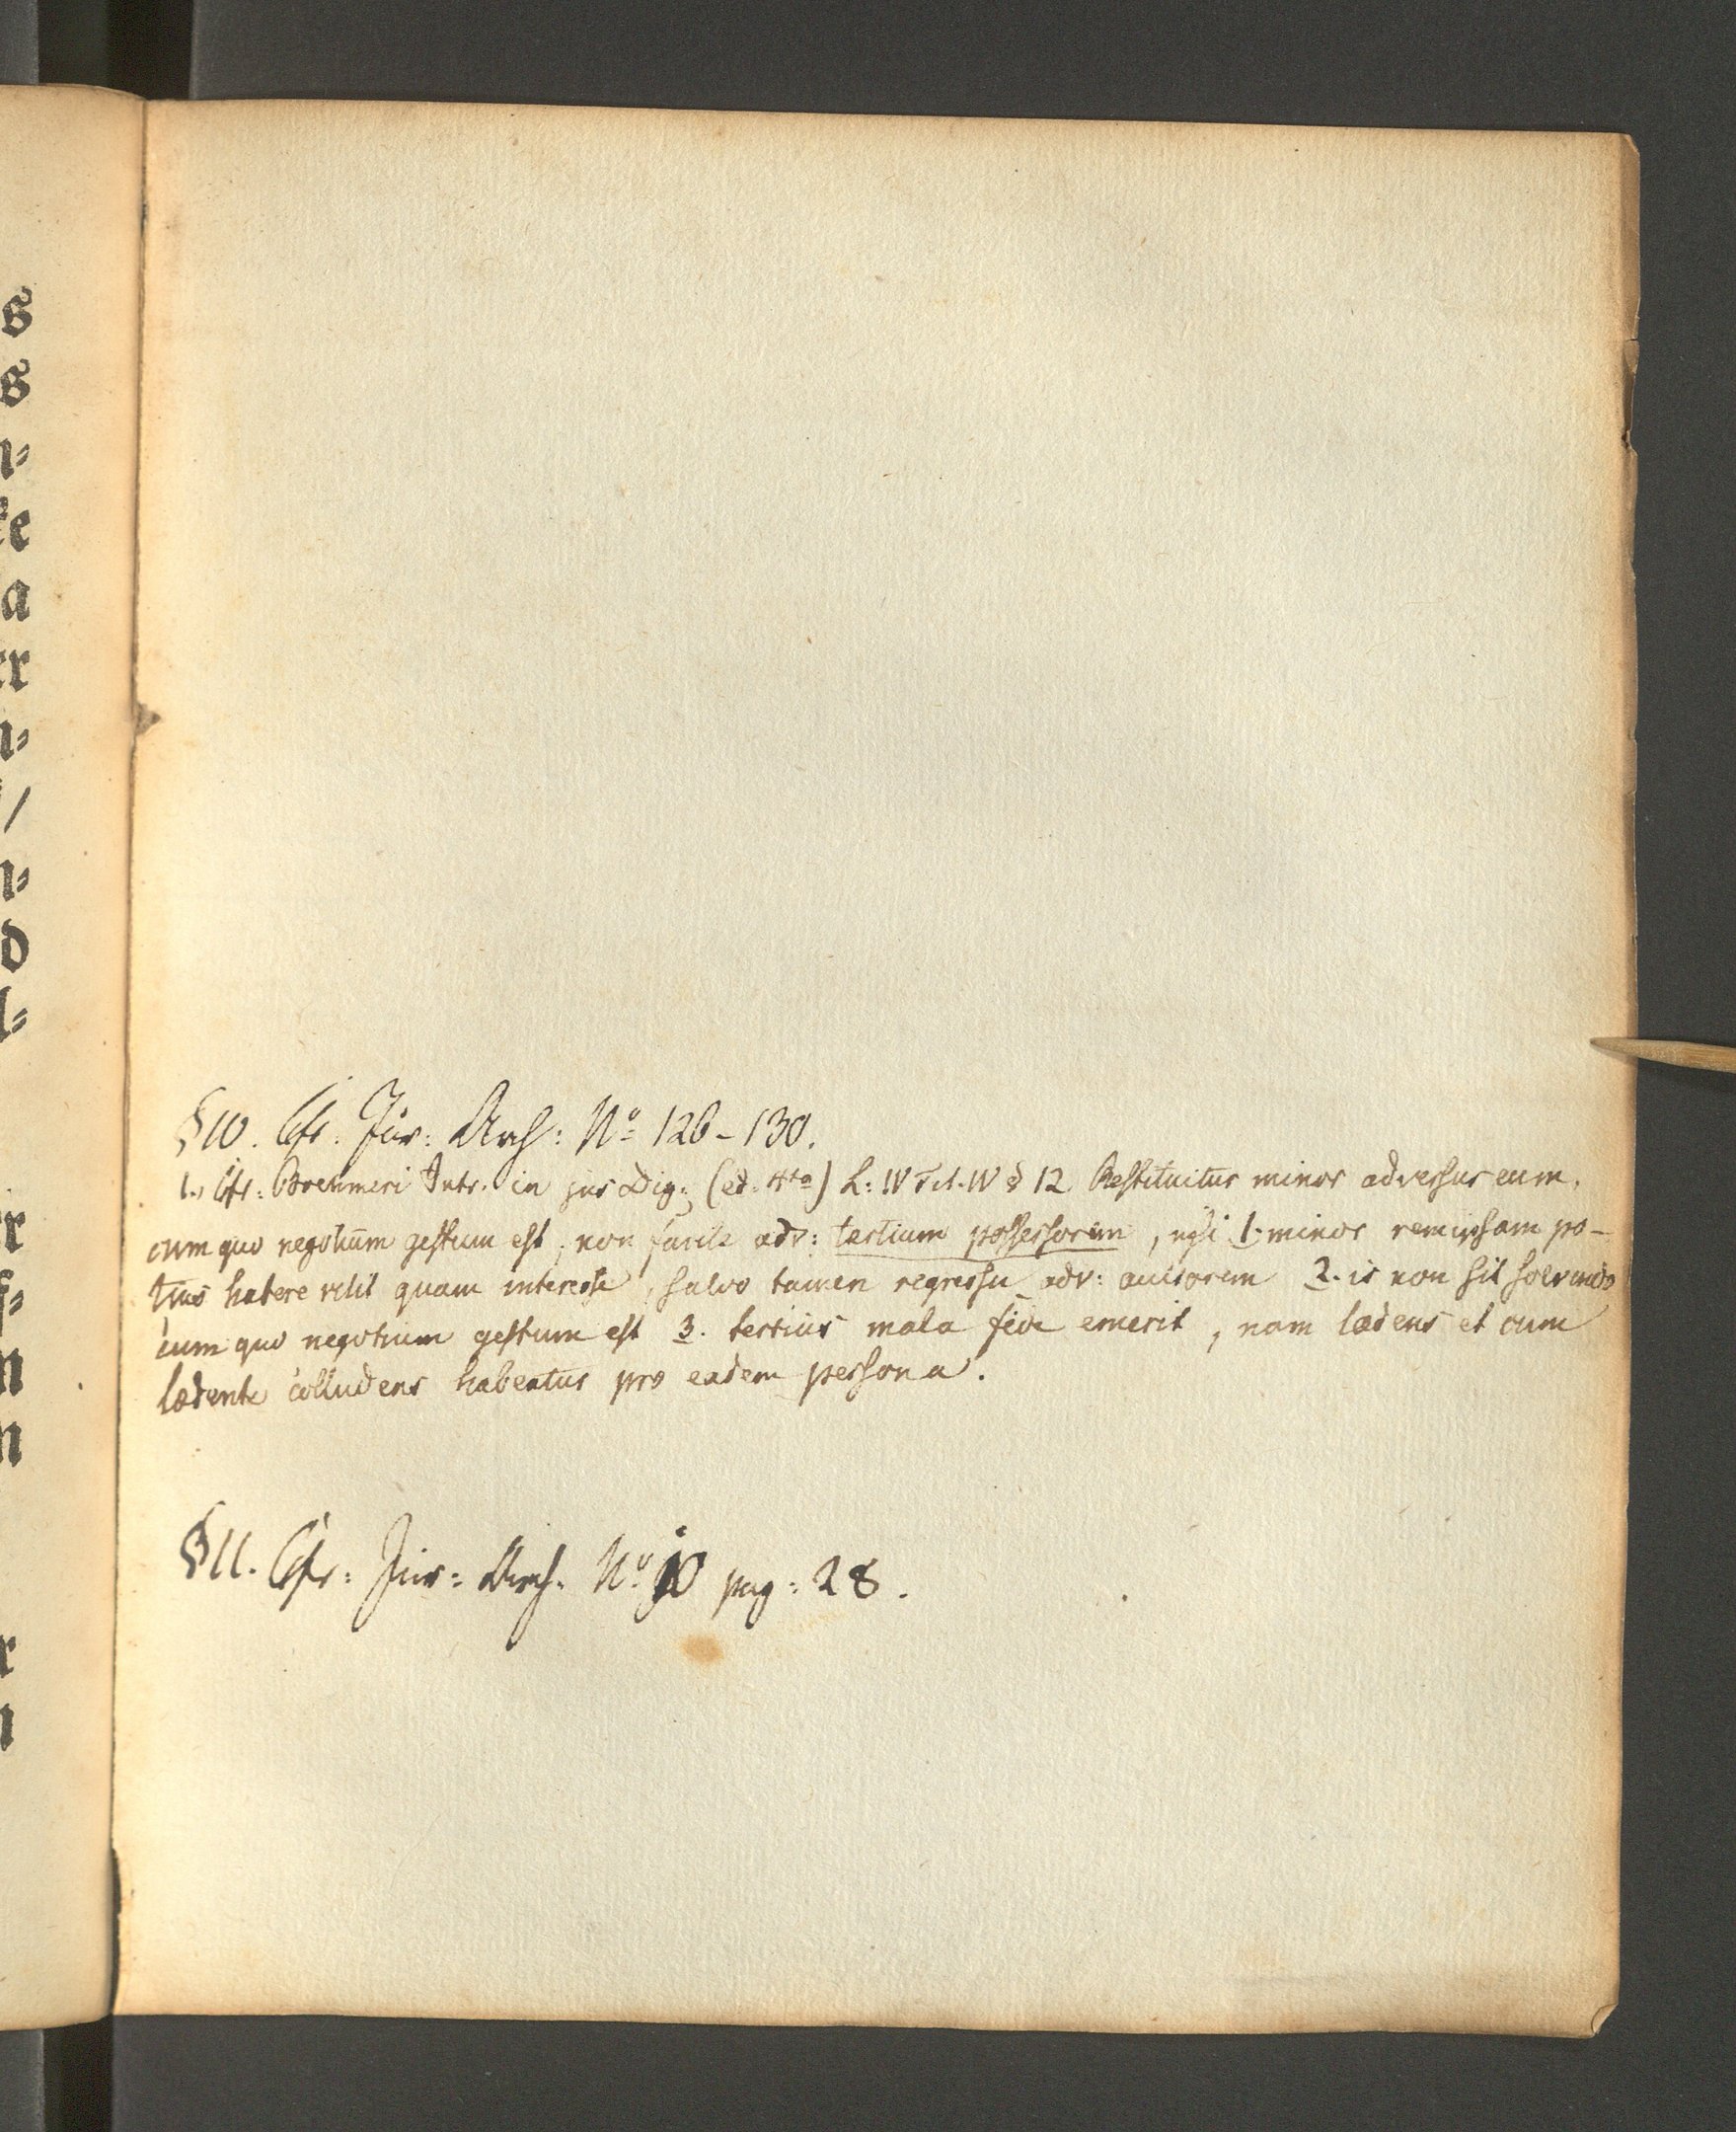 §10. Cfr. Jur: Arch: No 126-130.
1., Cfr: Boehmeri Intr. in jus Dig: (ed. 4ta) L: IV Tit. IV § 12 Restituitur minor adversus eum,
cum quo negotium gestum est, non facile adv: tertium possessorem, nisi 1. minor rem ipsam po-
tius habere velit quam interesse, salvo tamen regressu adv: auctorem 2. is non sit solvendo
cum quo negotium gestum est 3. tertius mala fide emerit, nam lædens et cum
lædente colludens habentur pro eadem persona.
§11. Cfr: Jur: Arch. No. pag: 28.
s
s
n-
ke
a
er
n-
/
n-
d
l-
r
f-
n
n
r
n